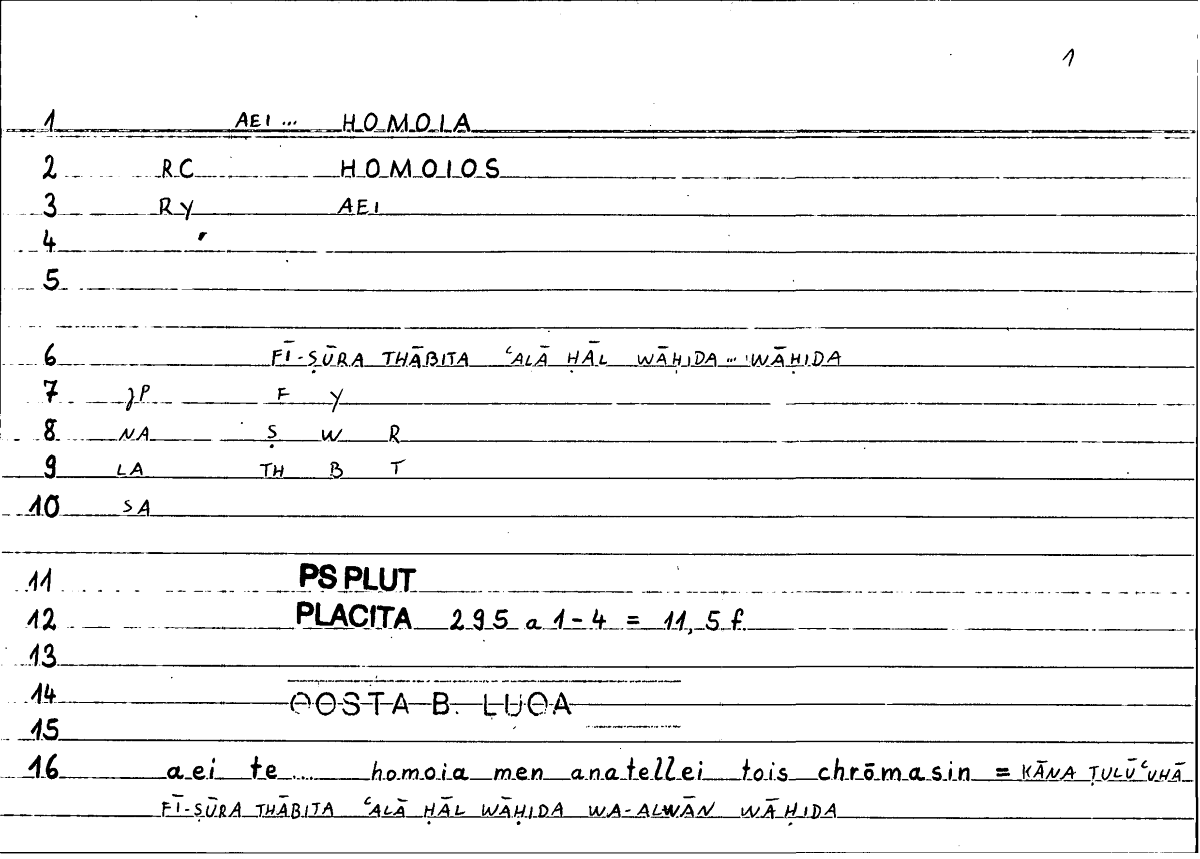 1
1 AEI ... HOMOIA
2 RC HOMOIOS
3 RY AEI
4
5
6 FĪ-ṢŪRA THĀBITA ʿALĀ ḤĀL WĀḤIDA ... WĀḤIDA
7 JP F Y
8 NA Ṣ W R
9 LA TH B T
10 SA
11 PS PLUT
12 PLACITA 295 a 1-4 = 11,5 f.
13
14 QOSTA B. LUQA
15
16 aei te ... homoia men anatellei tois chrōmasin = KĀNA ṬULŪʿUHĀ
FĪ-ṢŪRA THĀBITA ʿALĀ ḤĀL WĀḤIDA WA-ALWĀN WĀḤIDA